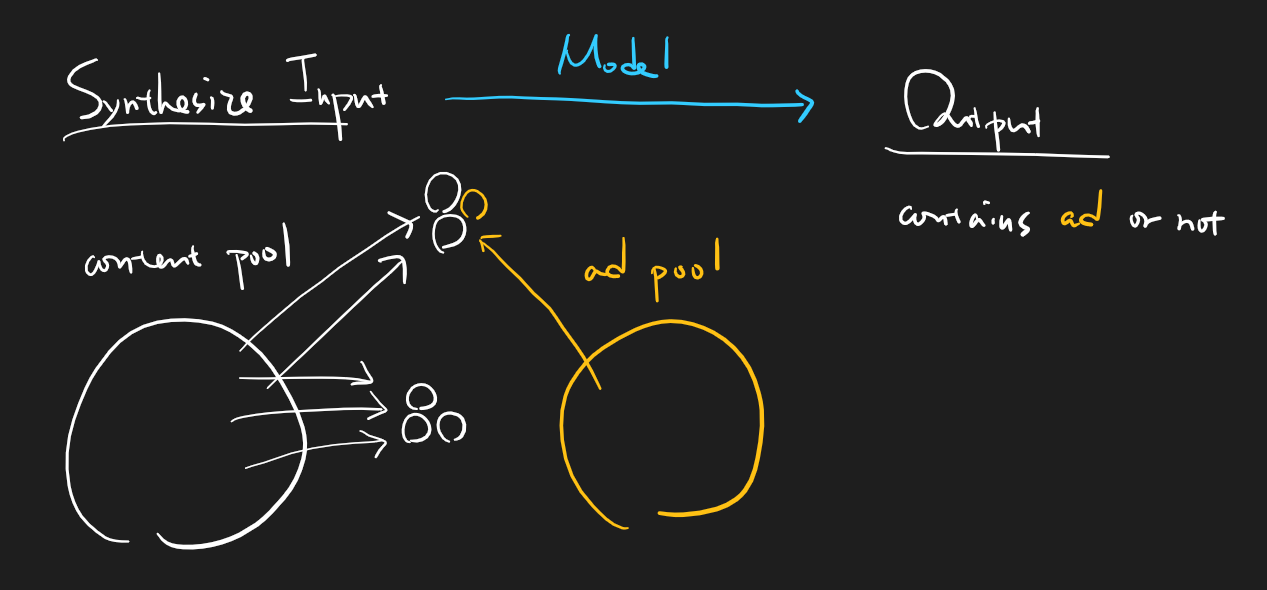 Synthesize Input
Model
Output
contains ad or not
content pool
ad pool